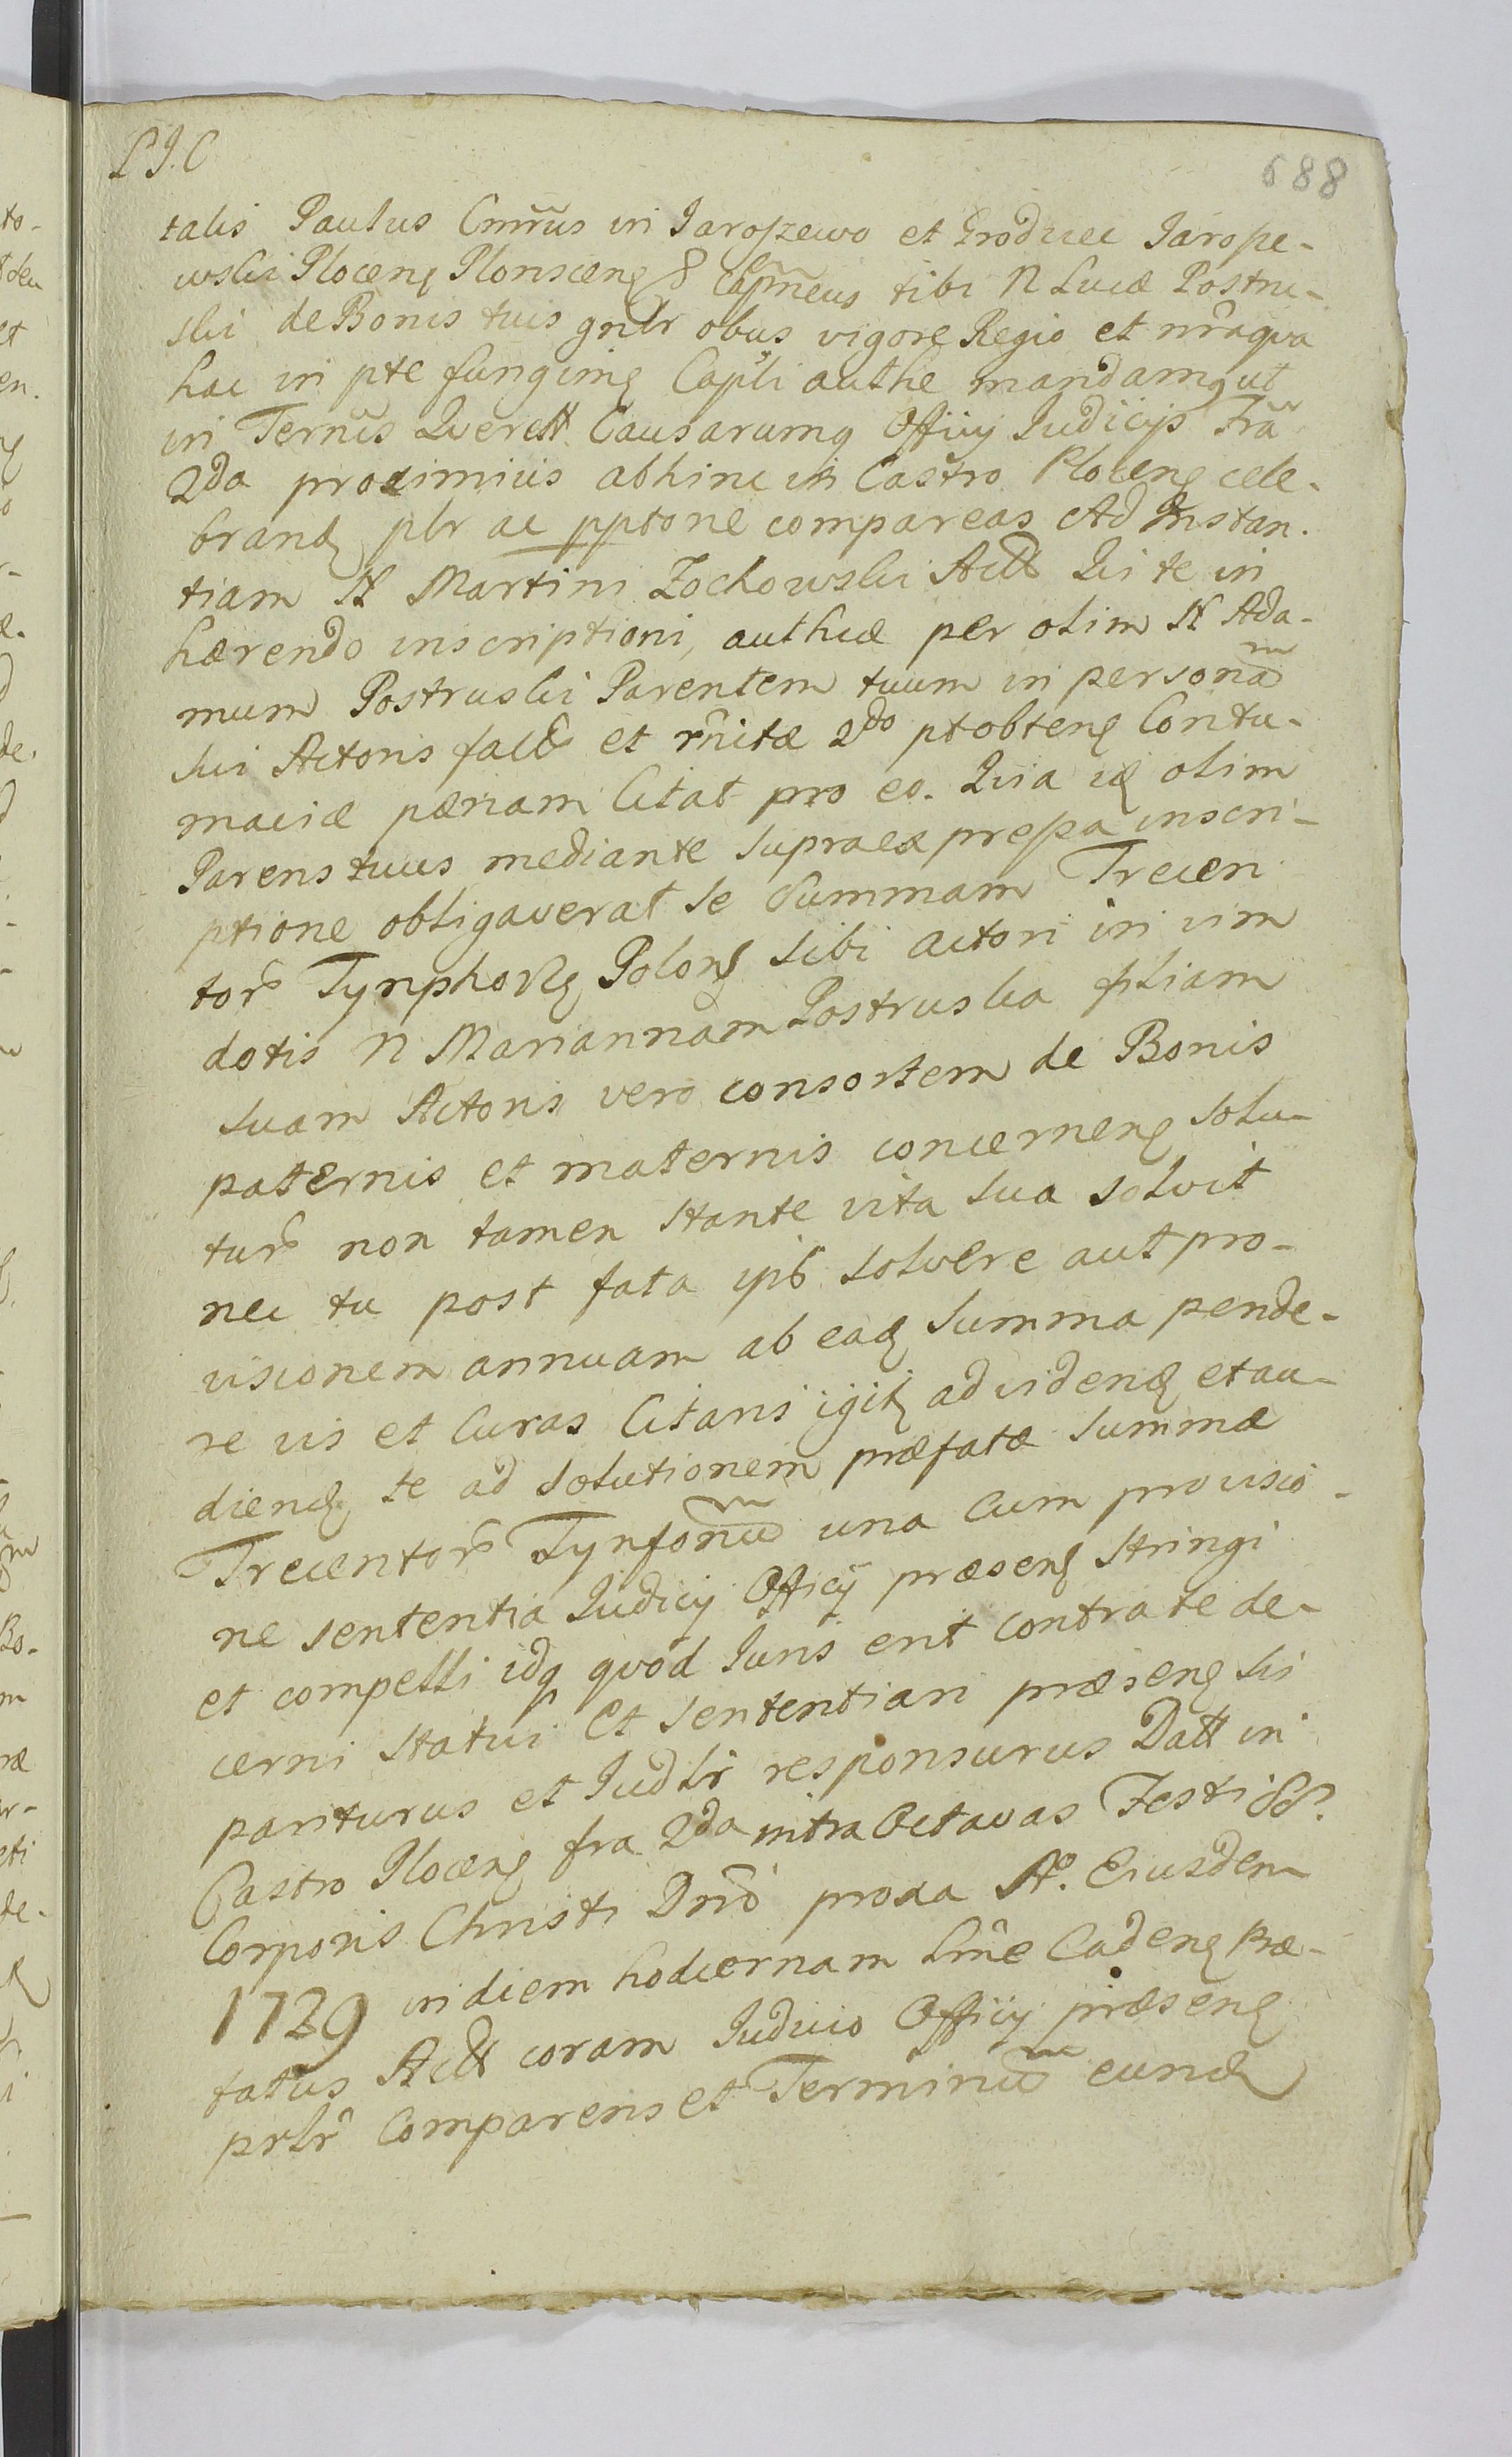 L J. C
688
talis Paulus Cmrus in Jaroszewo et Grodziec Jarosze-
wski Plocen Plonscen & Capneus tibi N Lucæ Postru-
ski de Bonis tuis gnlr obus vigore Regio et nra qua
hac in pte fungimq Capli authe mandamq ut
in Termis Querell Causarumq Officij Judicijs Fra
2da proximius abhinc in Castro Plocen cele-
brand plr ac pptone compareas Ad Instan-
tiam N Martini Zochowski Act Qui te in
hærendo inscriptioni, authicæ per olim N Ada-
mum Postruski Parentem tuum in personam
sui Actoris fact et rnitæ 2do pt obten Contu-
maciæ pænam Citat pro eo. Quia id olim
Parens tuus mediante supraexpressa inscri-
ptione obligaverat se summam Trecen
tor Tynphor Polon sibi actori in vim
dotis N Mariannam Postruska filiam
suam Actoris vero consortem de Bonis
paternis et maternis concernen solu-
tur non tamen stante vita sua solvit
nec tu post fata ips solvere aut pro-
visionem annuam ab ead summa pende-
re vis et Curas Citaris igit ad viden et au-
dien te ad solutionem præfatæ summæ
Trecentor Tynfonum una cum provisio-
ne sententia Judicij Officij præsen stringi
et compelli idq quod Juris erit contra te de-
cerni statui Et sententiari præsen sis
pariturus et Judlr responsurus Datt in
Castro Plocen fra 2da intra Octavas Festi SS.
Corporis Christi Dni proxa Ao. Eiusdem
1729 in diem hodiernam lme Caden Præ-
fatus Act coram Judicio Officij præsen
prlr Comparens et Terminum eund